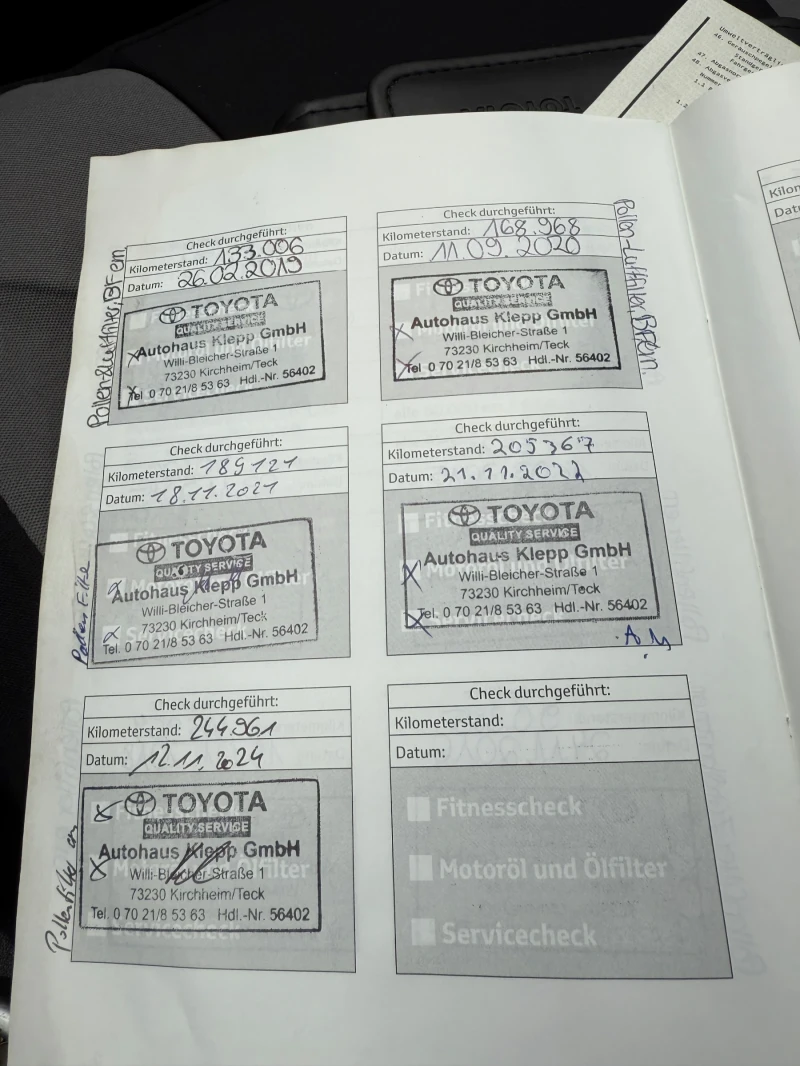 Umweltverträgli
TOYOTA
Check durchgeführt:
Kilometerstand: 133.006
Datum: 26.02.2019
TOYOTA
QUALITY SERVICE
Autohaus Klepp GmbH
Willi-Bleicher-Straße 1
73230 Kirchheim/Teck
Tel. 0 70 21/8 53 63 Hdl.-Nr. 56402
Check durchgeführt:
Kilometerstand: 168.968
Datum: 11.09.2020
Pollen-Luftfilter,
TOYOTA
QUALITY SERVICE
Autohaus Klepp GmbH
Willi-Bleicher-Straße 1
73230 Kirchheim/Teck
Tel. 0 70 21/8 53 63 Hdl.-Nr. 56402
Check durchgeführt:
Kilometerstand: 189121
Datum: 18.11.2021
TOYOTA
QUALITY SERVICE
Autohaus Klepp GmbH
Willi-Bleicher-Straße 1
73230 Kirchheim/Teck
Tel. 0 70 21/8 53 63 Hdl.-Nr. 56402
Check durchgeführt:
Kilometerstand: 205367
Datum: 21.11.2022
TOYOTA
QUALITY SERVICE
Autohaus Klepp GmbH
Willi-Bleicher-Straße 1
73230 Kirchheim/Teck
Tel. 0 70 21/8 53 63 Hdl.-Nr. 56402
Check durchgeführt:
Kilometerstand: 244.961
Datum: 12.11.2024
Pollenfilter
TOYOTA
QUALITY SERVICE
Autohaus Klepp GmbH
Willi-Bleicher-Straße 1
73230 Kirchheim/Teck
Tel. 0 70 21/8 53 63 Hdl.-Nr. 56402
Servicecheck
Check durchgeführt:
Kilometerstand:
Datum:
Fitnesscheck
Motoröl und Ölfilter
Servicecheck